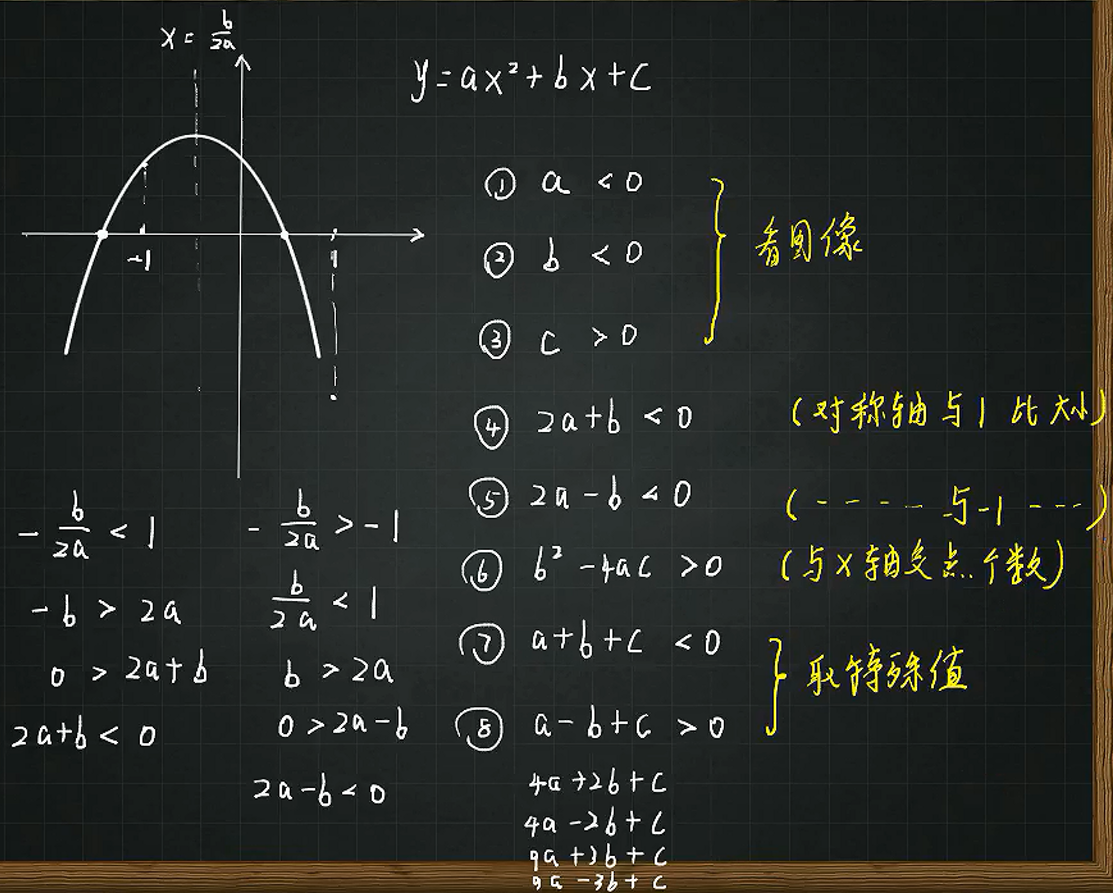 x = b/2a
y = ax² + bx + c
-1
1
① a < 0
② b < 0
③ c > 0
看图像
④ 2a + b < 0
(对称轴与1比大小)
⑤ 2a - b < 0
(- - - - 与-1 - - -)
⑥ b² - 4ac > 0
(与x轴交点个数)
⑦ a + b + c < 0
⑧ a - b + c > 0
取特殊值
4a + 2b + c
4a - 2b + c
9a + 3b + c
9a - 3b + c
- b/2a < 1
-b > 2a
0 > 2a + b
2a + b < 0
- b/2a > -1
b/2a < 1
b > 2a
0 > 2a - b
2a - b < 0